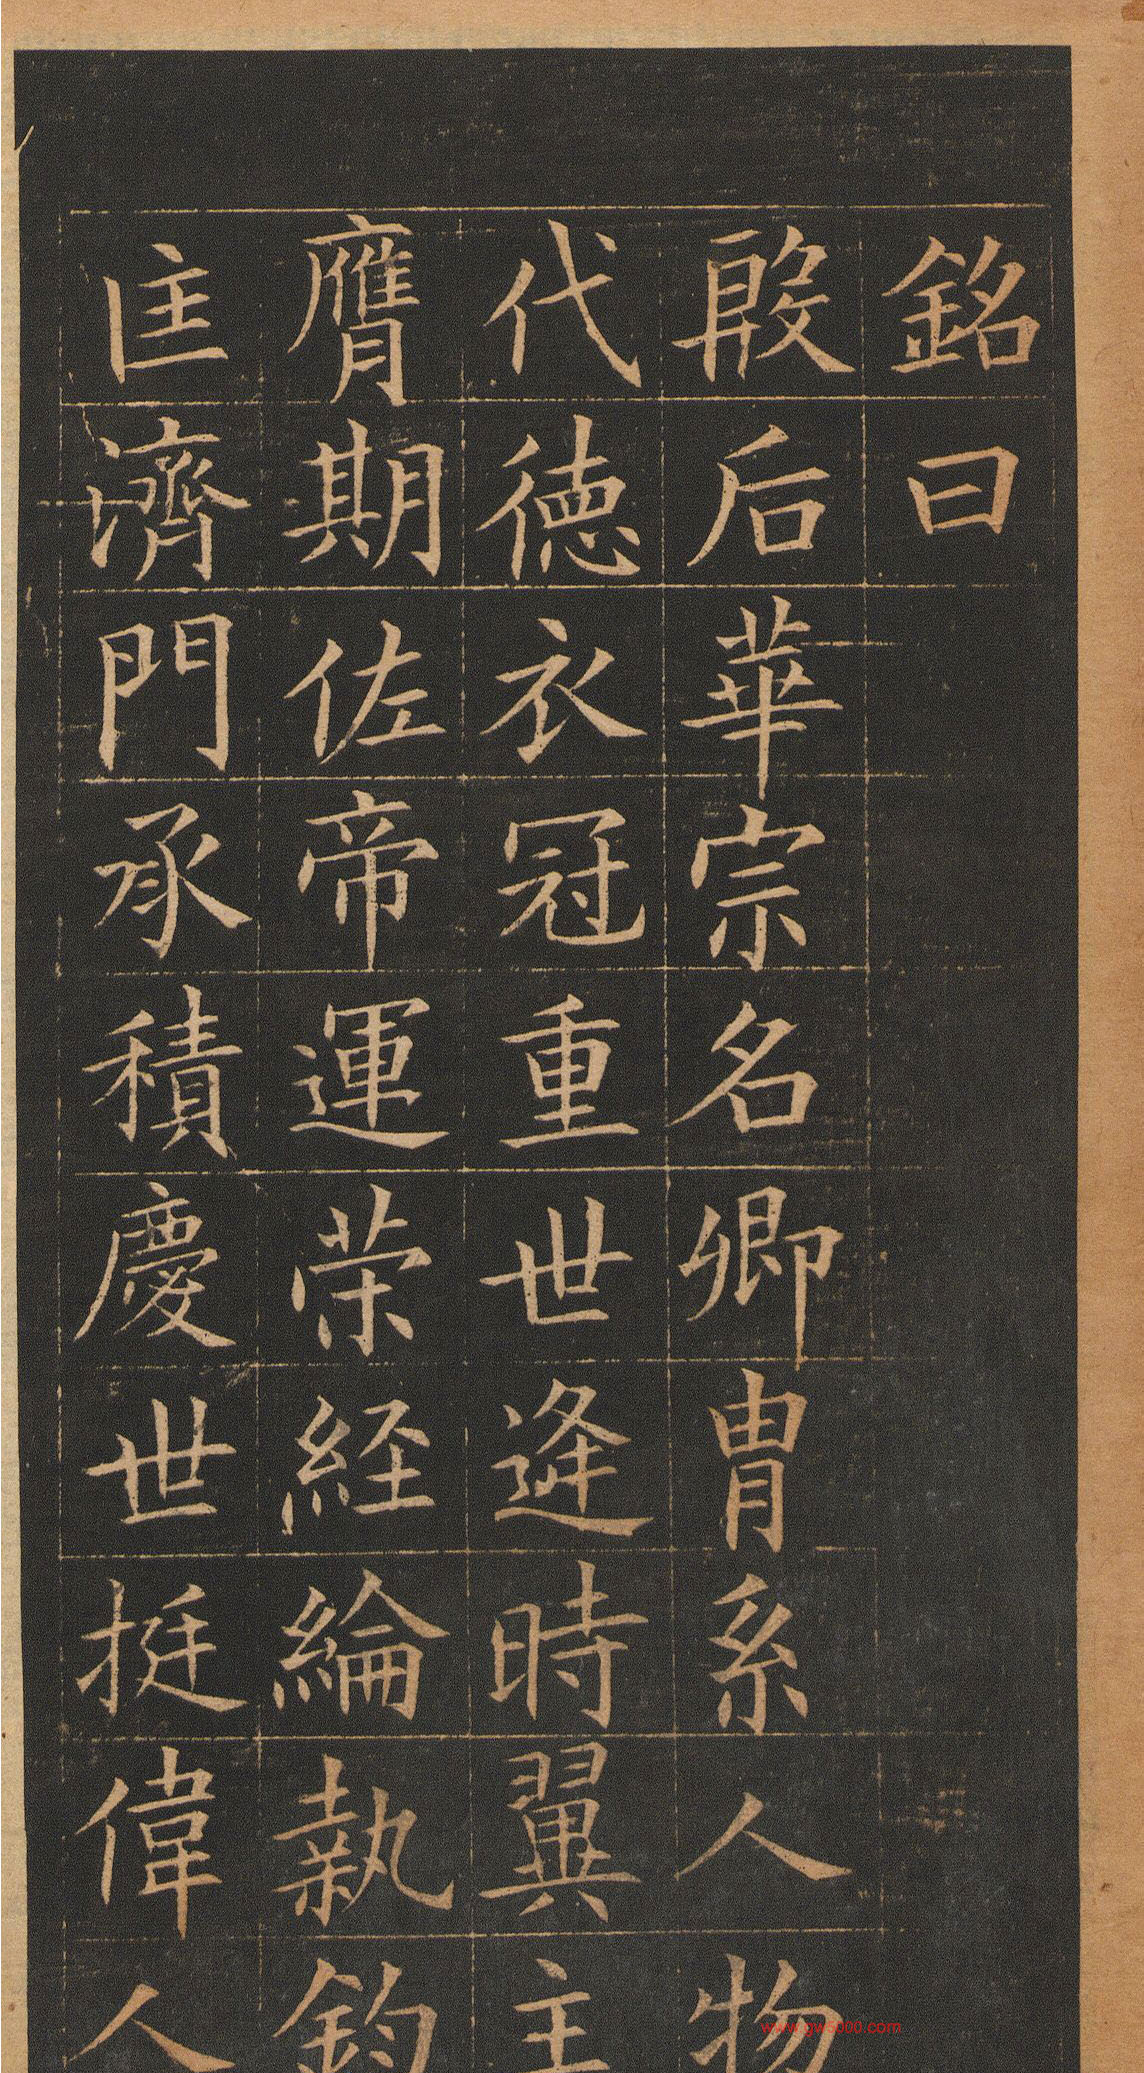 銘曰
殷后華宗名卿胄系人物
代德衣冠重世逢時翼主
膺期佐帝運策經綸執鈞
匡濟門承積慶世挺偉人
www.gw8000.com